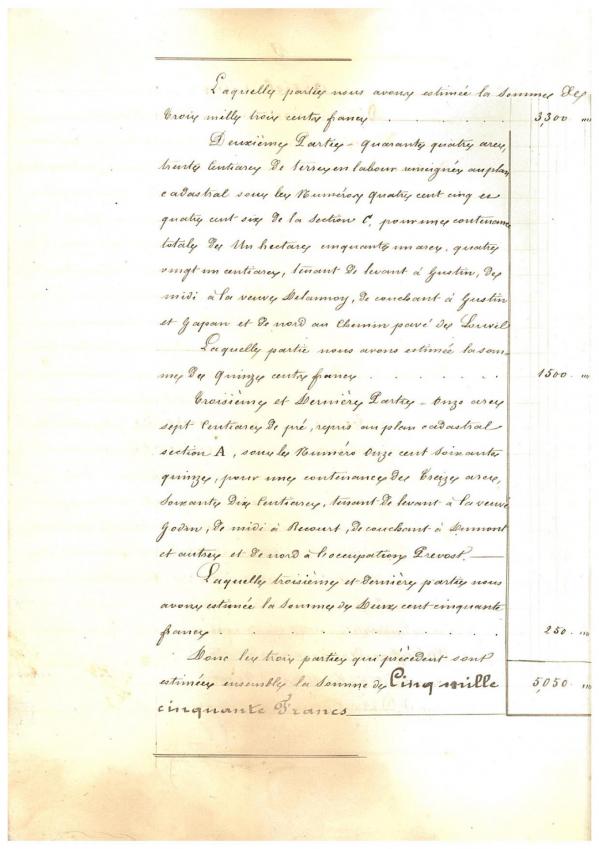 Laquelle partie nous avons estimée la somme de
Trois mille trois cents francs . . . . . . . . . . 3,300 "
Deuxième Partie - quarante quatre ares,
trente Centiares de terres en labour renseignée au plan
cadastral sous les Numéros quatre cent cinq et
quatre cent six de la section C, pour une contenance
totale de Un hectare cinquante un ares, quatre
vingt un centiares, tenant de levant à Gustin, de
midi à la veuve Delannoy, de couchant à Gustin
et Gapan et de nord au Chemin pavé de Louvil
Laquelle partie nous avons estimée la som-
me de Quinze cents francs . . . . . . . 1500 "
Troisième et Dernière Partie - Onze ares
sept Centiares de pré, repris au plan cadastral
section A, sous le Numéro Onze cent soixante
quinze, pour une contenance de Treize ares,
Soixante Dix Centiares, tenant de levant à la veuve
Godin, de midi à Recourt, de couchant à Dumont
et autres et de nord à l'occupation Prevost.
Laquelle troisième et dernière partie nous
avons estimée la Somme de Deux cent cinquante
francs . . . . . . . . . . . . . . 250 "
Donc les trois parties qui précèdent sont
estimées ensemble la Somme de Cinq mille 5,050 "
cinquante Francs